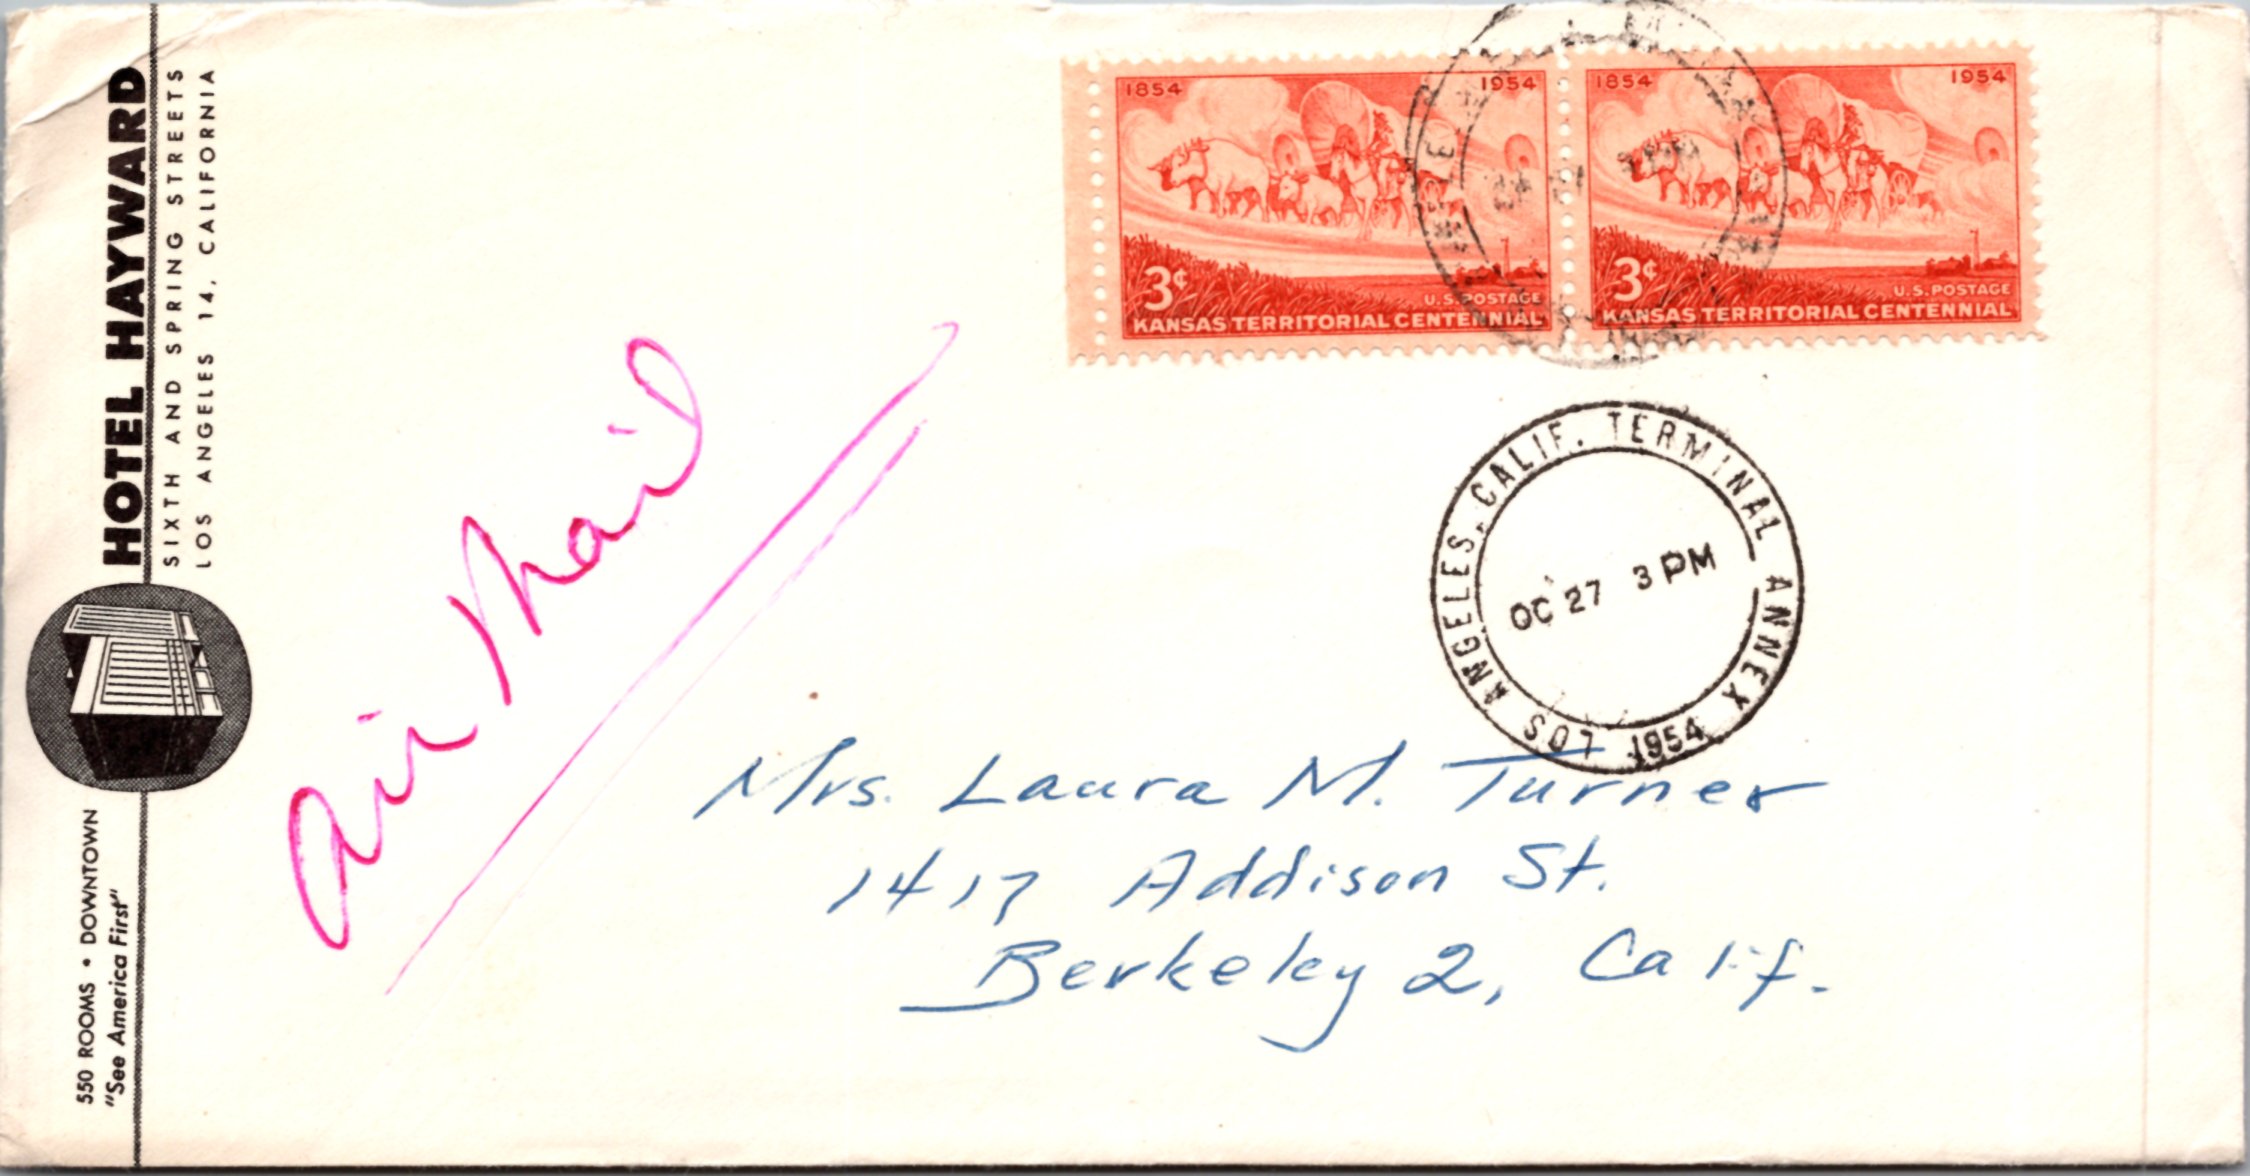 HOTEL HAYWARD
SIXTH AND SPRING STREETS
LOS ANGELES 14, CALIFORNIA
550 ROOMS • DOWNTOWN
"See America First"
1854 1954
3¢
U.S. POSTAGE
KANSAS TERRITORIAL CENTENNIAL
1854 1954
3¢
U.S. POSTAGE
KANSAS TERRITORIAL CENTENNIAL
LOS ANGELES, CALIF. TERMINAL ANNEX
OC 27 3 PM
1954
Air Mail
Mrs. Laura M. Turner
1417 Addison St.
Berkeley 2, Calif.